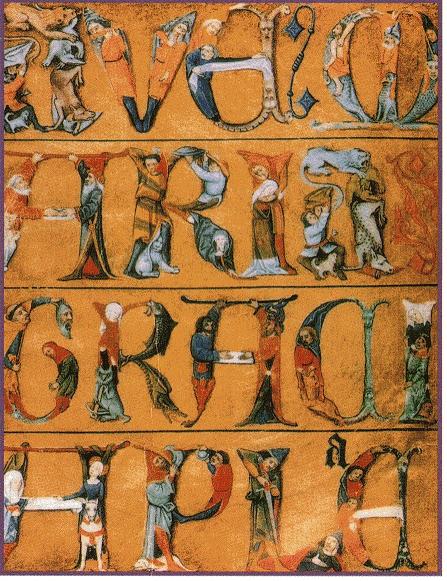 AVE:M
ARIA
GRACI
A PLEa